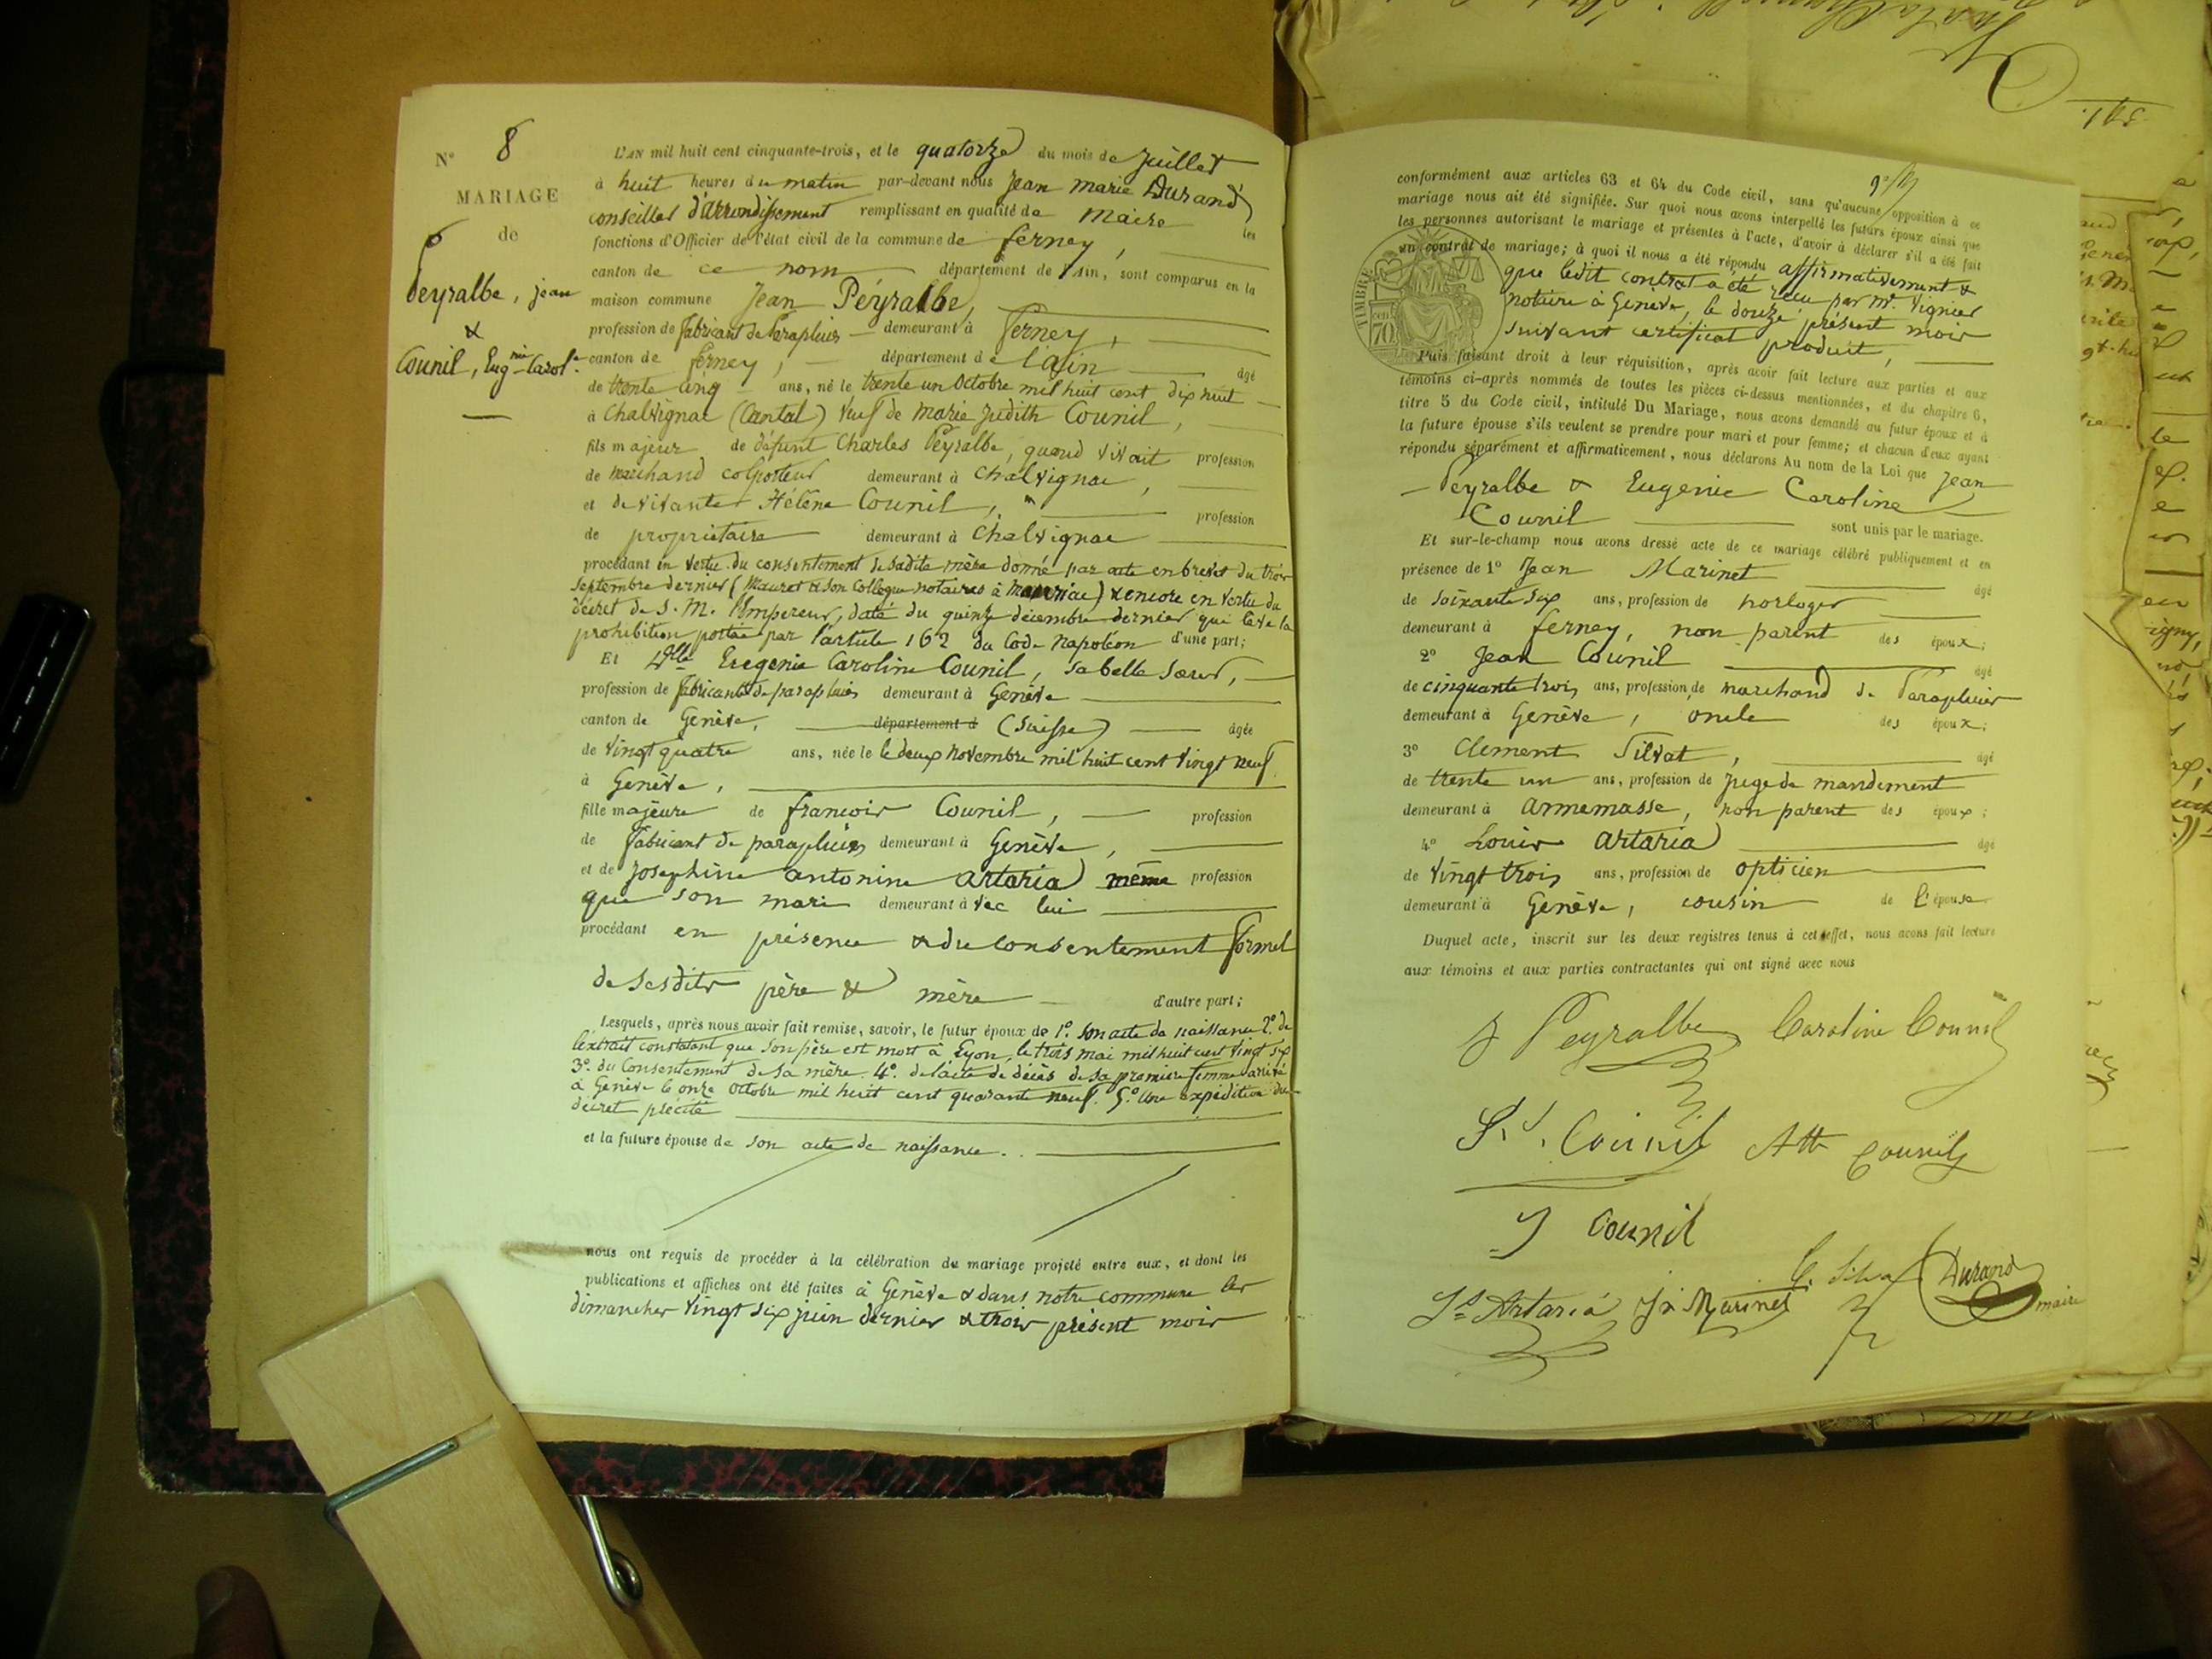 N° 8
MARIAGE
de
Peyralbe, jean
&
Counil, Eug-nie Carol-e
L'AN mil huit cent cinquante-trois, et le quatorze du mois de juillet
à huit heures du matin par-devant nous Jean marie Durand
conseiller d'arrondissement remplissant en qualité de maire les
fonctions d'Officier de l'état civil de la commune de ferney,
canton de ce nom département de l'Ain, sont comparus en la
maison commune Jean Peyralbe,
profession de fabricant de Parapluies demeurant à Ferney,
canton de ferney, département de l'ain âgé
de trente cinq ans, né le trente un Octobre mil huit cent dix huit
à Chalvignac (Cantal) veuf de marie Judith Counil,
fils majeur de défunt Charles Peyralbe, quand vivait profession
de marchand colporteur demeurant à Chalvignac,
et de vivante Hélène Counil, profession
de propriétaire demeurant à Chalvignac
procédant en vertu du consentement de sadite mère donné par acte en brevet du trois
septembre dernier (Mauret & son Collegue notaires à mauriac) & encore en vertu du
décret de S. M. l'Empereur, daté du quinze décembre dernier qui lève la
prohibition portée par l'article 162 du Code Napoléon d'une part;
Et Dlle Eugenie Caroline Counil, sa belle sœur,
profession de fabricante de parapluies demeurant à Genève
canton de Genève, département d (Suisse) âgée
de vingt quatre ans, née le le deux novembre mil huit cent vingt neuf
à Genève,
fille majeure de francois Counil, profession
de fabricant de parapluies demeurant à Genève,
et de Josephine antonine artaria même profession
que son mari demeurant à vec lui
procédant en présence & du consentement formel
de sesdits père & mère d'autre part;
Lesquels, après nous avoir fait remise, savoir, le futur époux de 1°. son acte de naissance 2°. de
l'extrait constatant que son père est mort à Lyon, le trois mai mil huit cent vingt six
3°. du Consentement de sa mère. 4°. de l'acte de décès de sa premiere femme arrivé
à Genève le onze octobre mil huit cent quarante neuf. 5°. Une expédition du
décret précité
et la future épouse de son acte de naissance.
nous ont requis de procéder à la célébration du mariage projeté entre eux, et dont les
publications et affiches ont été faites à Genève & dans notre commune les
dimanches vingt six juin dernier & trois présent mois
conformément aux articles 63 et 64 du Code civil, sans qu'aucune opposition à ce
mariage nous ait été signifiée. Sur quoi nous avons interpellé les futurs époux ainsi que
les personnes autorisant le mariage et présentes à l'acte, d'avoir à déclarer s'il a été fait
un contrat de mariage; à quoi il nous a été répondu affirmativement &
que ledit contrat a été reçu par Me. Vignier
notaire à Geneve, le douze présent mois
suivant certificat produit,
TIMBRE
70
Puis faisant droit à leur réquisition, après avoir fait lecture aux parties et aux
témoins ci-après nommés de toutes les pièces ci-dessus mentionnées, et du chapitre 6,
titre 5 du Code civil, intitulé Du Mariage, nous avons demandé au futur époux et à
la future épouse s'ils veulent se prendre pour mari et pour femme; et chacun d'eux ayant
répondu séparément et affirmativement, nous déclarons Au nom de la Loi que Jean
Peyralbe & Eugenie Caroline
Counil sont unis par le mariage.
Et sur-le-champ nous avons dressé acte de ce mariage célébré publiquement et en
présence de 1° Jean Marinet âgé
de soixante six ans, profession de horloger
demeurant à ferney, non parent des époux;
2° Jean Counil âgé
de cinquante trois ans, profession de marchand de Parapluies
demeurant à Genève, oncle des époux;
3° Clement Silvat, âgé
de trente un ans, profession de juge de mandement
demeurant à annemasse, non parent des époux;
4° Louis artaria âgé
de vingt trois ans, profession de opticien
demeurant à Genève, cousin de l'épouse
Duquel acte, inscrit sur les deux registres tenus à cet effet, nous avons fait lecture
aux témoins et aux parties contractantes qui ont signé avec nous
J Peyralbe Caroline Counil
Counil Counil
J Counil
Artaria Marinet Durand
maire